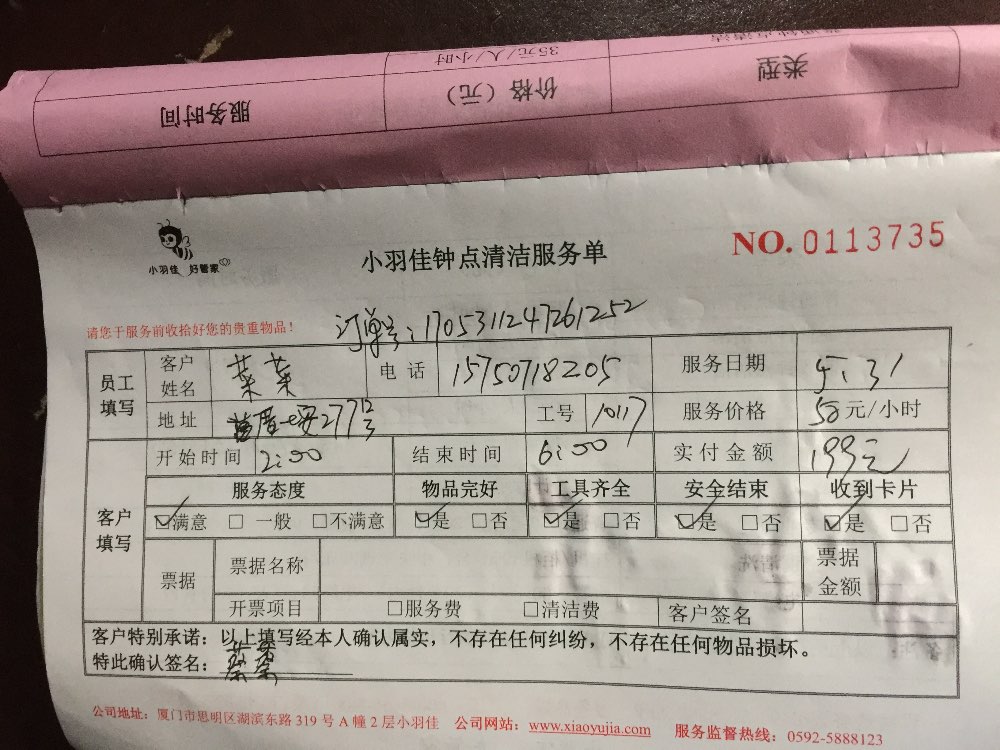 普通钟点清洁
35元/人/小时
类型 价格（元） 服务时间
小羽佳 好管家
小羽佳钟点清洁服务单
NO. 0113735
请您于服务前收拾好您的贵重物品！
订单号：1705311247261252
员工填写 客户姓名 菜菜 电话 15750718205 服务日期 5.31
地址 工号 10117 服务价格 50元/小时
客户填写 开始时间 2:00 结束时间 6:00 实付金额 199元
服务态度 物品完好 工具齐全 安全结束 收到卡片
☑满意 □一般 □不满意 ☑是 □否 ☑是 □否 ☑是 □否 ☑是 □否
票据 票据名称 票据金额
开票项目 □服务费 □清洁费 客户签名
客户特别承诺：以上填写经本人确认属实，不存在任何纠纷，不存在任何物品损坏。
特此确认签名：菜菜
公司地址：厦门市思明区湖滨东路319号A幢2层小羽佳 公司网站：www.xiaoyujia.com 服务监督热线：0592-5888123